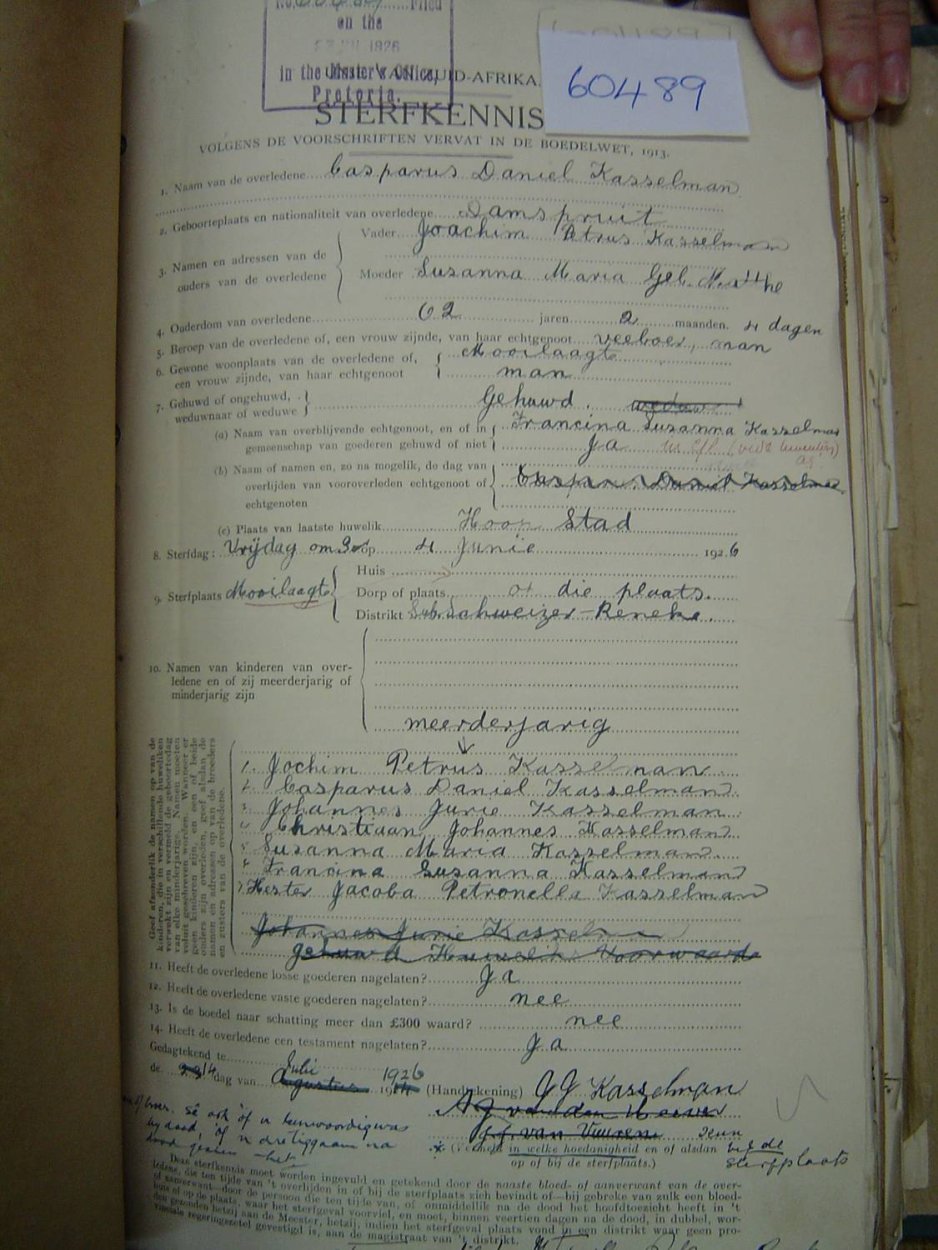 Filed
on the
1926
in the Master's Office,
Pretoria.
60489
UID-AFRIKA.
STERFKENNIS
VOLGENS DE VOORSCHRIFTEN VERVAT IN DE BOEDELWET, 1913.
1. Naam van de overledene Casparus Daniel Kasselman
2. Geboorteplaats en nationaliteit van overledene Damspruit
3. Namen en adressen van de ouders van de overledene
Vader Joachim Petrus Kasselman
Moeder Susanna Maria Geb.
4. Ouderdom van overledene 62 jaren 2 maanden 4 dagen
5. Beroep van de overledene of, een vrouw zijnde, van haar echtgenoot veeboer, man
6. Gewone woonplaats van de overledene of, een vrouw zijnde, van haar echtgenoot
Mooilaagte
man
7. Gehuwd of ongehuwd, weduwnaar of weduwe
Gehuwd.
(a) Naam van overblijvende echtgenoot, en of in gemeenschap van goederen gehuwd of niet
Francina Susanna Kasselman
Ja
(b) Naam of namen en, zo na mogelijk, de dag van overlijden van vooroverleden echtgenoot of echtgenoten
Casparus Daniel Kasselman
(c) Plaats van laatste huwelik Hoop Stad
8. Sterfdag: Vrijdag om 3 op 4 Junie 1926
9. Sterfplaats Mooilaagte
Huis
Dorp of plaats op die plaats.
Distrikt Schweizer-Reneke.
10. Namen van kinderen van overledene en of zij meerderjarig of minderjarig zijn
meerderjarig
Geef afzonderlik de namen op van de
kinderen, die in verschillende huweliken
verwekt zijn en vermeld de geboortedag
van elke minderjarige. Namen moeten
voluit geschreven worden. Wanneer er
geen kinderen zijn, en een of beide
ouders zijn overleden, geef alsdan de
namen en adressen op van de broeders
en zusters van de overledene.
1. Jochim Petrus Kasselman
2. Casparus Daniel Kasselman
3. Johannes Jurie Kasselman
4. Christiaan Johannes Kasselman
5. Susanna Maria Kasselman
6. Francina Susanna Kasselman
7. Hester Jacoba Petronella Kasselman
Johannes Jurie Kasselman
gehuwd Huweliks Voorwaarde
11. Heeft de overledene losse goederen nagelaten? Ja
12. Heeft de overledene vaste goederen nagelaten? nee
13. Is de boedel naar schatting meer dan £300 waard? nee
14. Heeft de overledene een testament nagelaten? Ja
Gedagtekend te
de 14 dag van Julie 1926
Augustus
(Handtekening) Kasselman
van der
J.J. van Vuuren seun
in welke hoedanigheid en of alsdan
op of bij de sterfplaats.) sterfplaats
sê ook of u teenwoordig was
Deze sterfkennis moet worden ingevuld en getekend door de naaste bloed- of aanverwant van de over-
ledene, die ten tijde van 't overlijden in of bij de sterfplaats zich bevindt of—bij gebreke van zulk een bloed-
of aanverwant—door de persoon die ten tijde van, of onmiddellik na de dood het hoofdtoezicht heeft in 't
of op de plaats, waar het sterfgeval voorviel, en moet, binnen veertien dagen na de dood, in dubbel, wor-
den gezonden hetzij aan de Meester, hetzij, indien het sterfgeval plaats vond in een distrikt waar geen pro-
vinciale regeringzetel gevestigd is, aan de magistraat van 't distrikt.